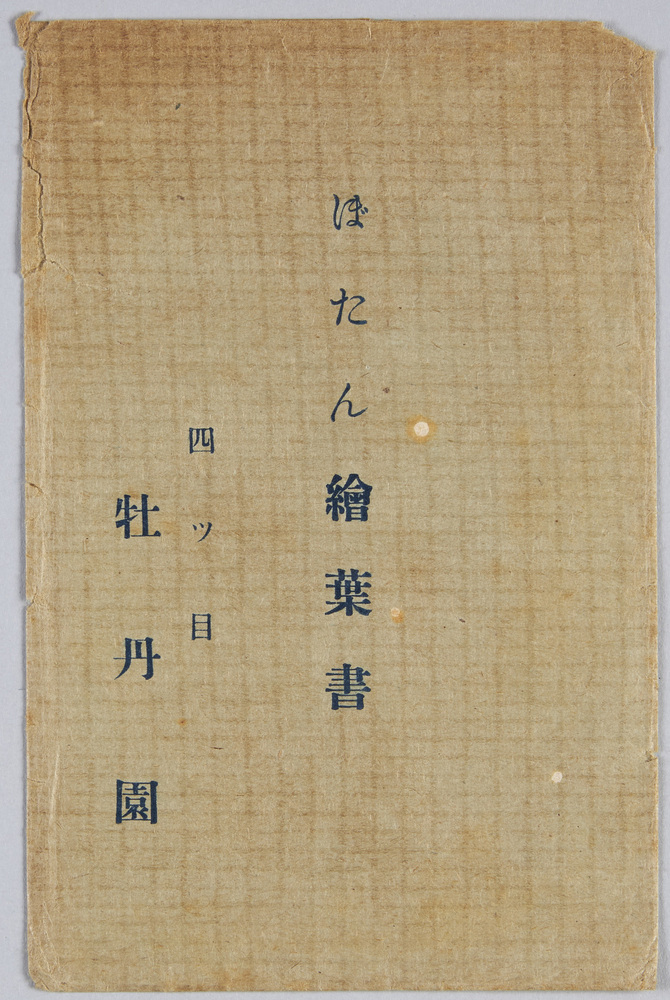 ぼたん繪葉書
四ッ目
牡丹園